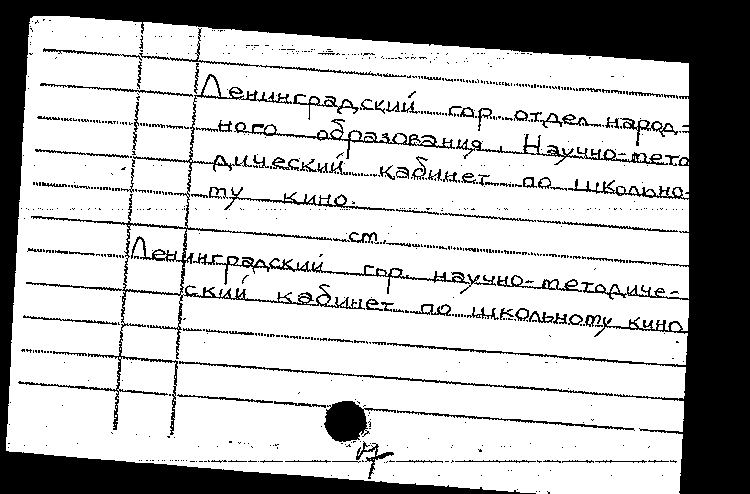 Ленинградский гор. отдел народ-
ного образования. Научно-мето
дический кабинет по школьно-
му кино.
см.
Ленинградский гор. научно-методиче-
ский кабинет по школьному кино